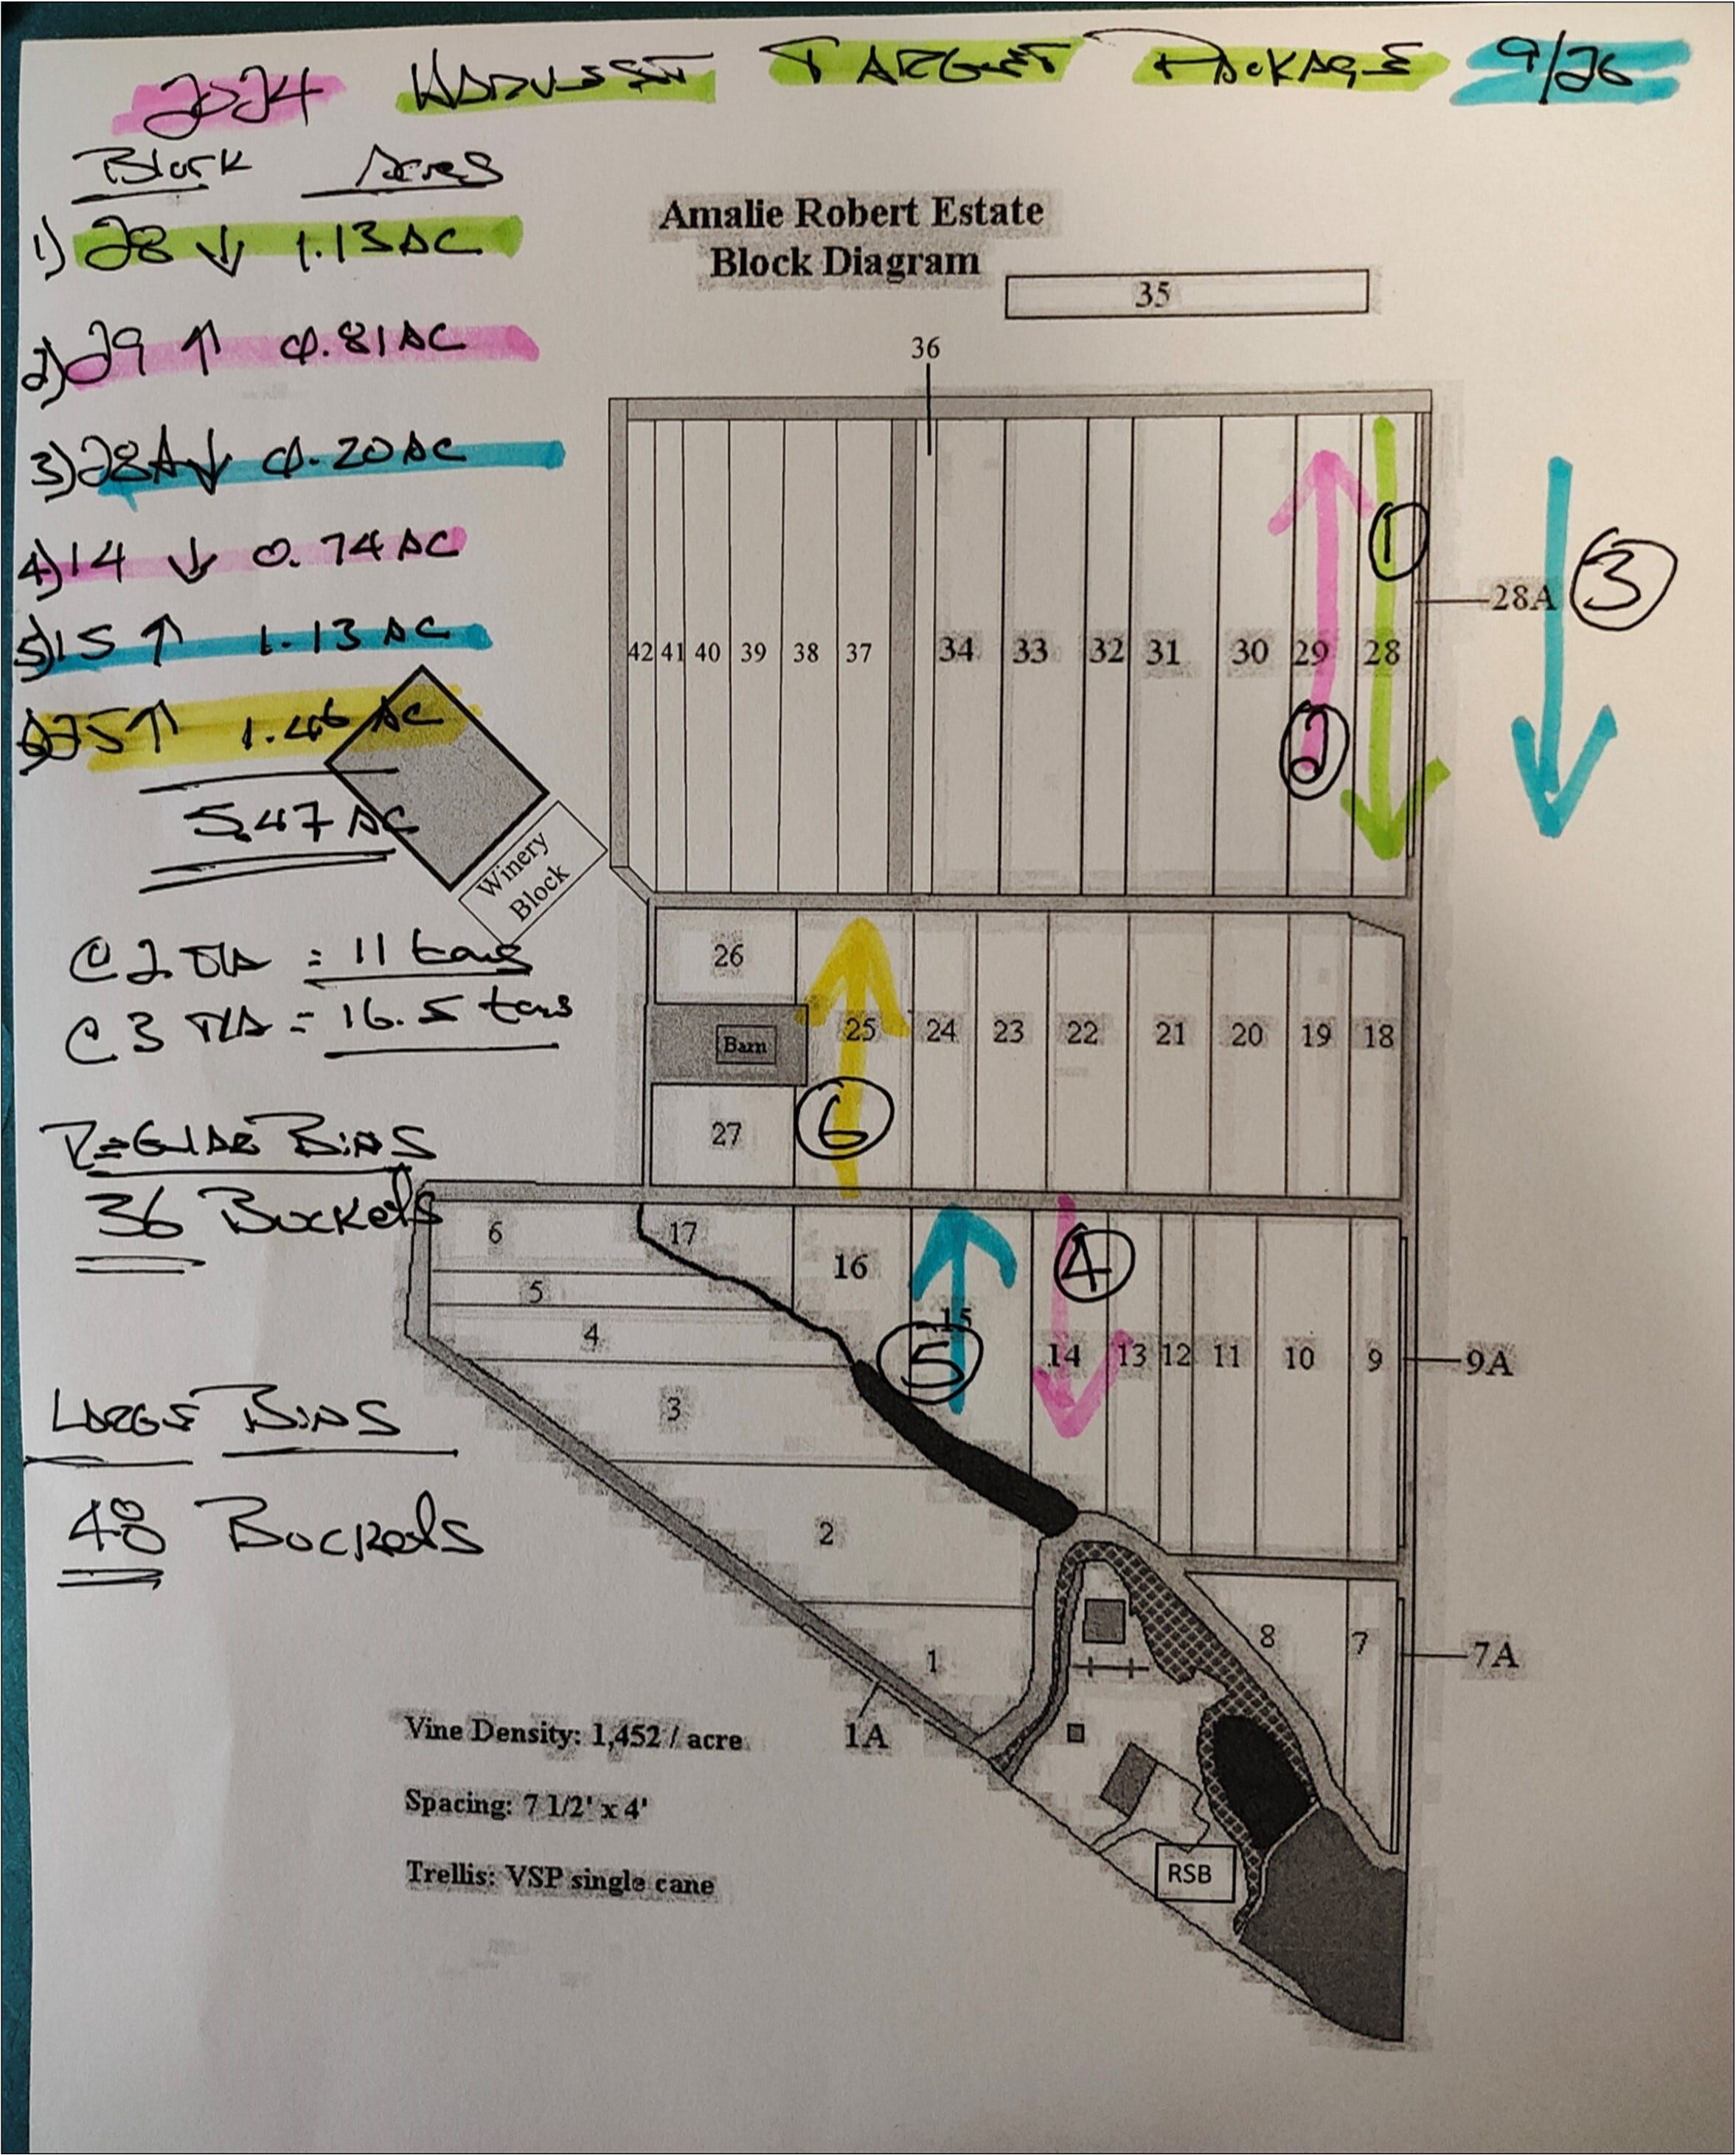 2024 HARVEST TARGET PACKAGE 9/26
Block Acres
1) 28 ↓ 1.13 AC
2) 29 ↑ 0.81 AC
3) 28A ↓ 0.20 AC
4) 14 ↓ 0.74 AC
5) 15 ↑ 1.13 AC
6) 25 ↑ 1.46 AC
5.47 AC
@ 2 T/A = 11 tons
@ 3 T/A = 16.5 tons
REGULAR BINS
36 Buckets
LARGE BINS
48 Buckets
Amalie Robert Estate
Block Diagram
35
36
1
28A 3
42 41 40 39 38 37 34 33 32 31 30 29 28
2
Winery
Block
26
25 24 23 22 21 20 19 18
Barn
27
6
6 17 16
4
5
15
4
5
14 13 12 11 10 9 9A
3
2
8 7 7A
1
1A
Vine Density: 1,452 / acre
Spacing: 7 1/2' x 4'
Trellis: VSP single cane
RSB